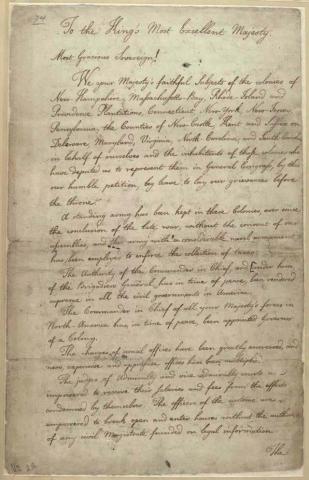 To the King's Most Excellent Majesty.
Most Gracious Sovereign!
We your Majesty's faithful Subjects of the colonies of
New Hampshire, Massachusetts Bay, Rhode Island and
Providence Plantations, Connecticut, New York, New Jersey
Pensylvania, the Counties of New Castle Kent and Sussex on
Delaware, Maryland, Virginia, North Carolina, and South Carolina
in behalf of ourselves and the inhabitants of those colonies who
have deputed us to represent them in General Congress, by this
our humble petition, beg leave to lay our grievances before
the throne.
A standing army has been kept in these Colonies, ever since
the conclusion of the late war, without the consent of our
assemblies; and this army with a considerable naval armament
has been employed to enforce the collection of taxes.
The Authority of the Commander in Chief, and under him
of the Brigadiers General has in time of peace, been rendered
supreme in all the civil governments in America.
The Commander in Chief of all your Majesty's forces in
North America has, in time of peace, been appointed Governor
of a Colony.
The charges of usual offices have been greatly increased, and
new, expensive and oppressive offices have been multiplied.
The judges of Admiralty and vice admiralty courts are
empowered to receive their salaries and fees from the effects
condemned by themselves. The officers of the customs are
empowered to break open and enter houses without the authority
of any civil Magistrate founded on legal information
The